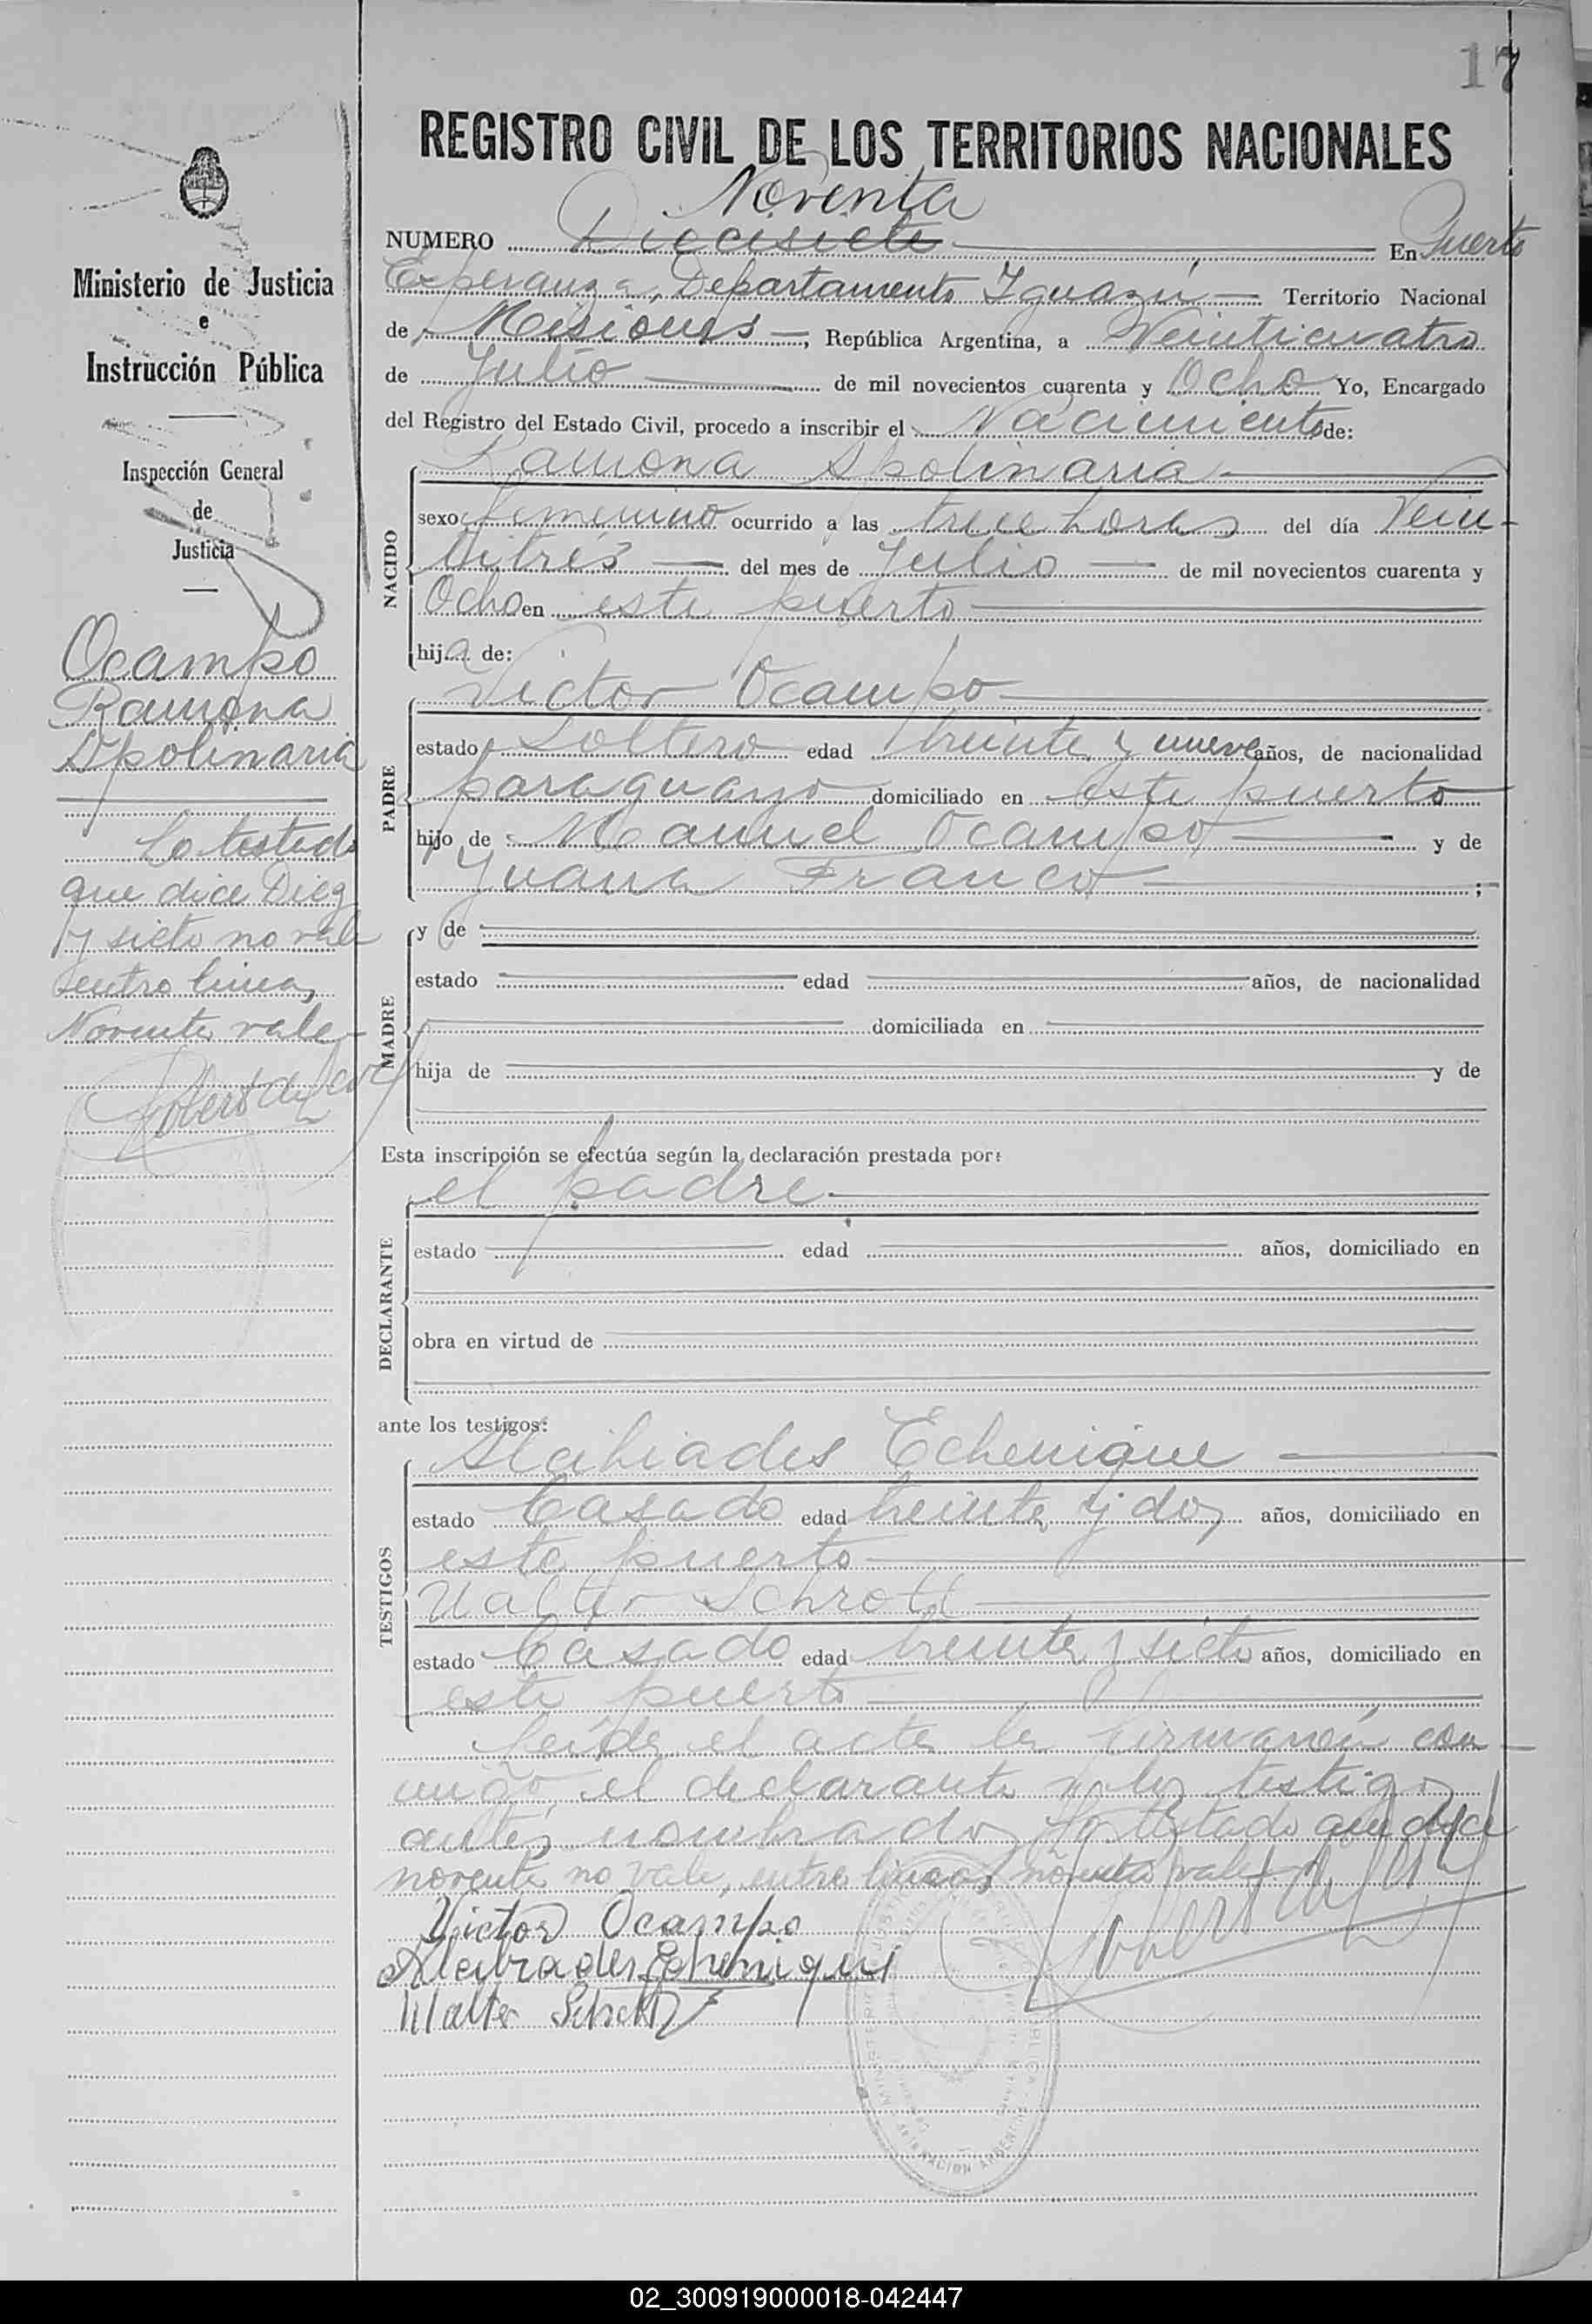 17
REGISTRO CIVIL DE LOS TERRITORIOS NACIONALES
Noventa
NUMERO Diecisiete En Puerto
Esperanza, Departamento Iguazú Territorio Nacional
de Misiones, República Argentina, a Veinticuatro
de Julio de mil novecientos cuarenta y Ocho Yo, Encargado
del Registro del Estado Civil, procedo a inscribir el Nacimiento de:
NACIDO
Ramona Apolinaria
sexo femenino ocurrido a las trece horas del día Vein-
titrés del mes de Julio de mil novecientos cuarenta y
Ocho en este puerto
hija de:
PADRE
Victor Ocampo
estado Soltero edad treinta y nueve años, de nacionalidad
paraguayo domiciliado en este puerto
hijo de Manuel Ocampo y de
Juana Franco ;
MADRE
y de
estado edad años, de nacionalidad
domiciliada en
hija de y de
Esta inscripción se efectúa según la declaración prestada por:
DECLARANTE
el padre
estado edad años, domiciliado en
obra en virtud de
ante los testigos:
TESTIGOS
Alcibiades Echenique
estado Casado edad treinta y dos años, domiciliado en
este puerto
Walter Schrott
estado Casado edad treinta y siete años, domiciliado en
este puerto
Leída el acta la firmaron con
migo el declarante y los testigos
antes nombrados Lo testado que dice
noventa no vale, entre lineas noventa vale
Victor Ocampo
Alcibiades Echenique
Walter
Ministerio de Justicia
e
Instrucción Pública
Inspección General
de
Justicia
Ocampo
Ramona
Apolinaria
Lo testado
que dice Diez
y siete no vale
entre lineas,
Noventa vale
02_300919000018-042447